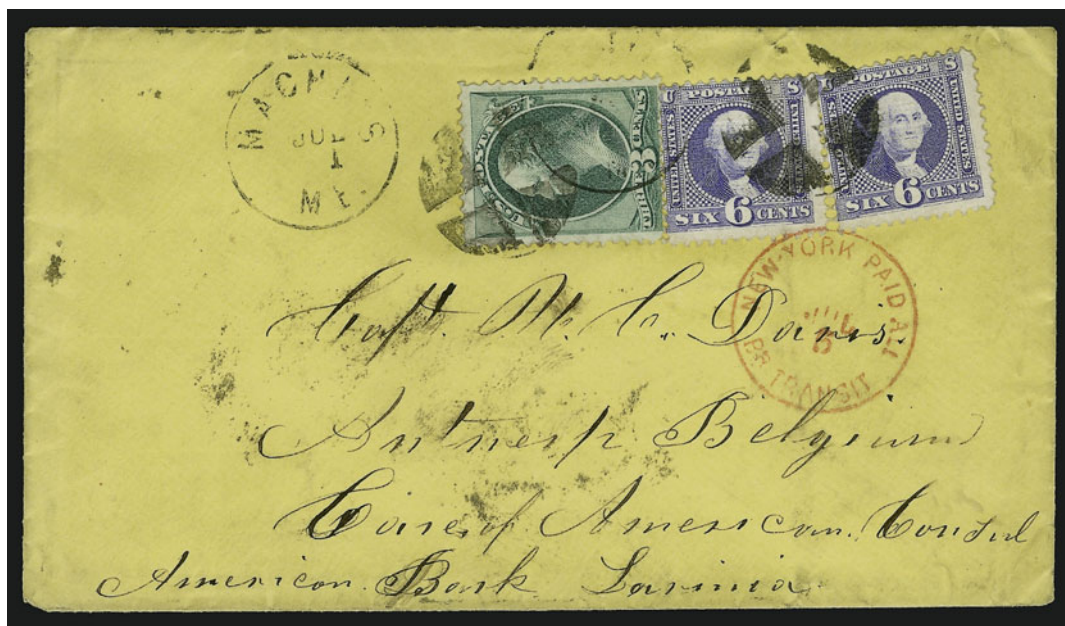 MACHIAS
JUL
1
ME.
U S POSTAGE
3 CENTS
THREE
U POSTAGE S
UNITED STATES
UNITED STATES
SIX 6 CENTS
U POSTAGE S
UNITED STATES
SIX 6 CENTS
NEW-YORK PAID ALL
JUL
5
BR TRANSIT
Capt. M. C. Davis.
Antwerp Belgium
Care of American Consul
American Bark Lavinia